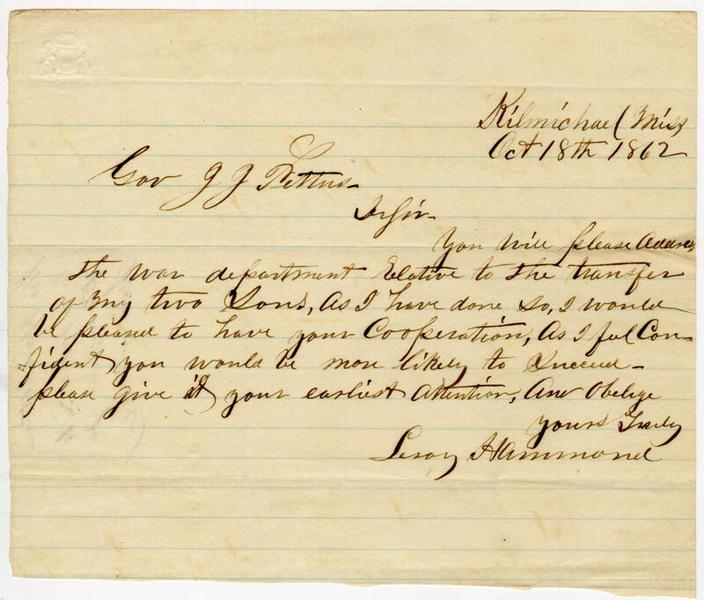 Kilmichael Miss
Oct 18th 1862
Gov J J Pettus
Dr Sir
You will please Address
the war department Relative to the transfer
of my two Sons, As I have done so, I would
be pleased to have your Cooperation, As I feel Con-
fident you would be more likely to Succeed-
please give it your earliest Attention, And Oblege
yours Truly
Leroy Hammond